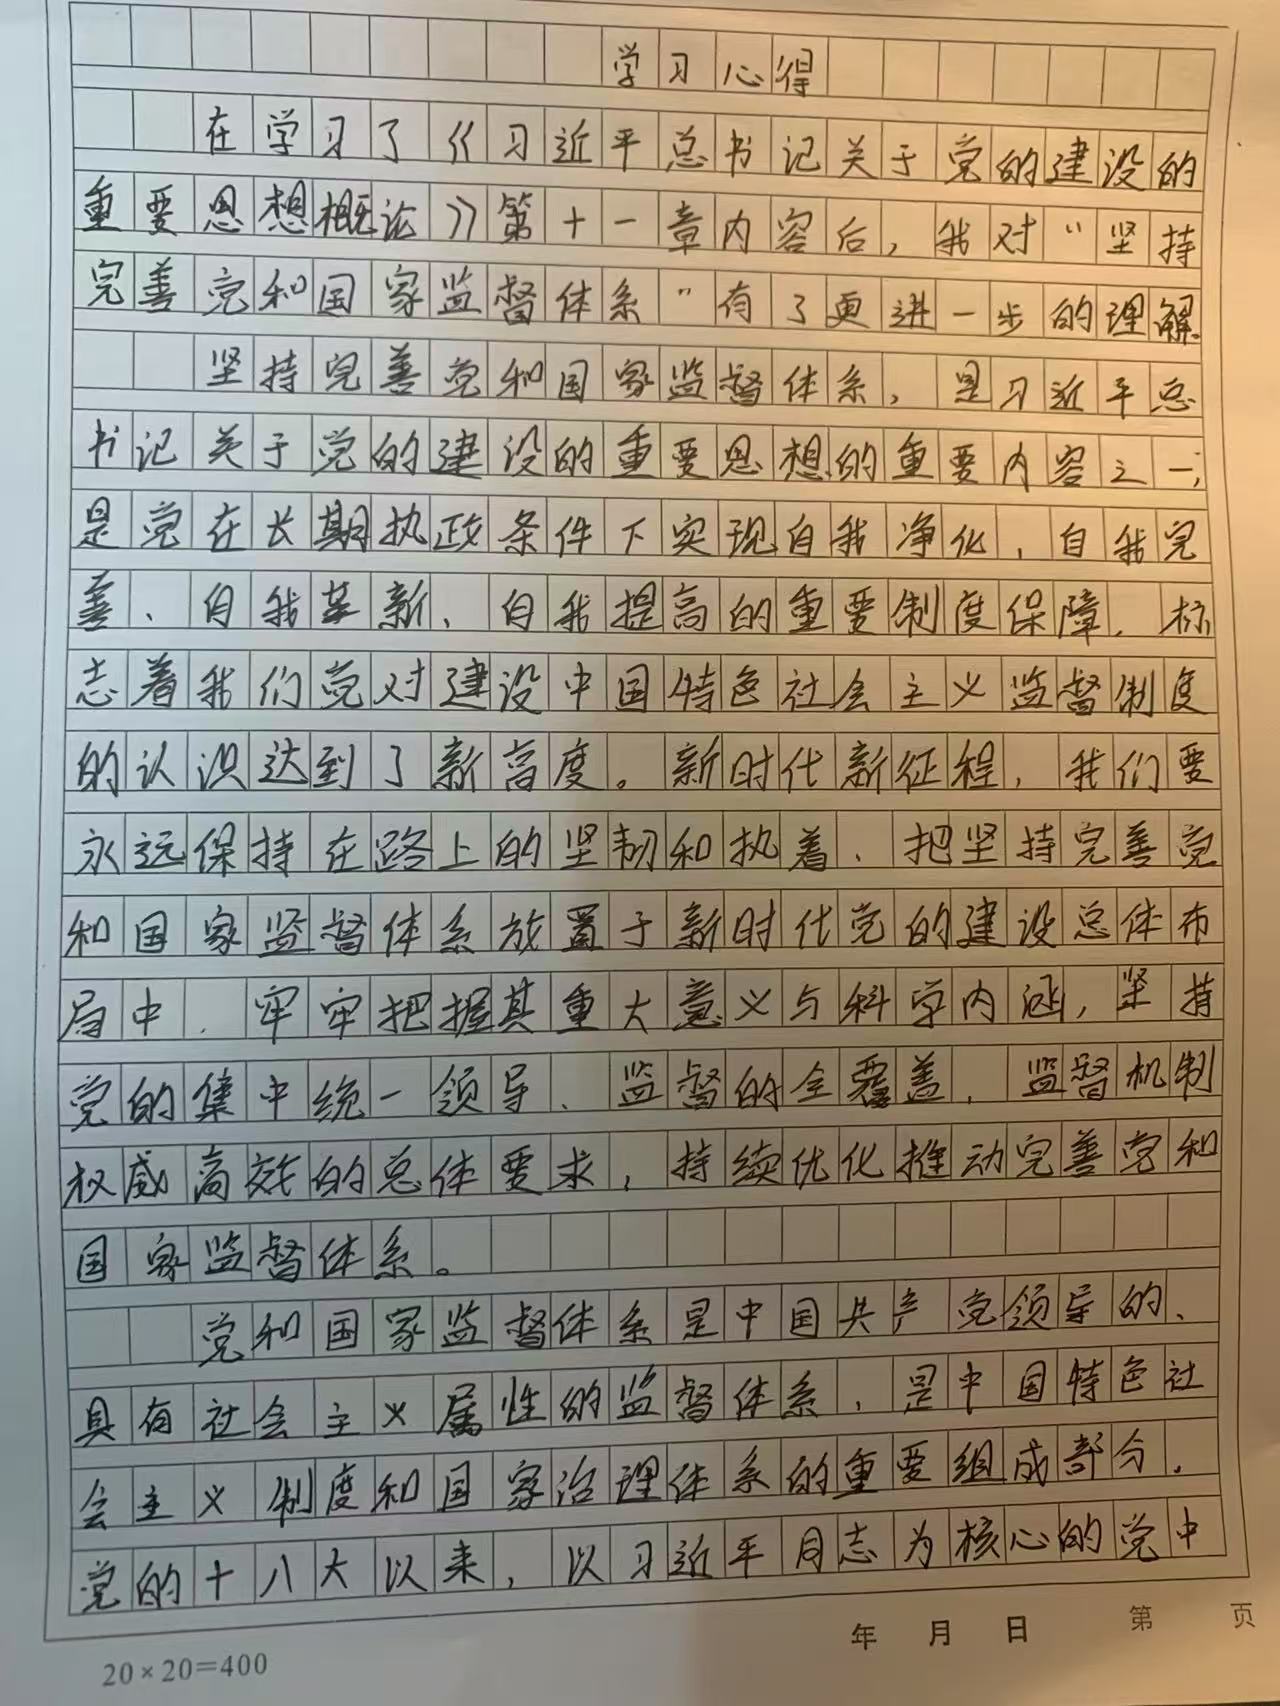 学习心得
在学习了《习近平总书记关于党的建设的
重要思想概论》第十一章内容后，我对“坚持
完善党和国家监督体系”有了更进一步的理解。
坚持完善党和国家监督体系，是习近平总
书记关于党的建设的重要思想的重要内容之一，
是党在长期执政条件下实现自我净化、自我完
善、自我革新、自我提高的重要制度保障，标
志着我们党对建设中国特色社会主义监督制度
的认识达到了新高度。新时代新征程，我们要
永远保持在路上的坚韧和执着，把坚持完善党
和国家监督体系放置于新时代党的建设总体布
局中，牢牢把握其重大意义与科学内涵，坚持
党的集中统一领导、监督的全覆盖，监督机制
权威高效的总体要求，持续优化推动完善党和
国家监督体系。
党和国家监督体系是中国共产党领导的、
具有社会主义属性的监督体系，是中国特色社
会主义制度和国家治理体系的重要组成部分。
党的十八大以来，以习近平同志为核心的党中
年 月 日 第 页
20×20=400